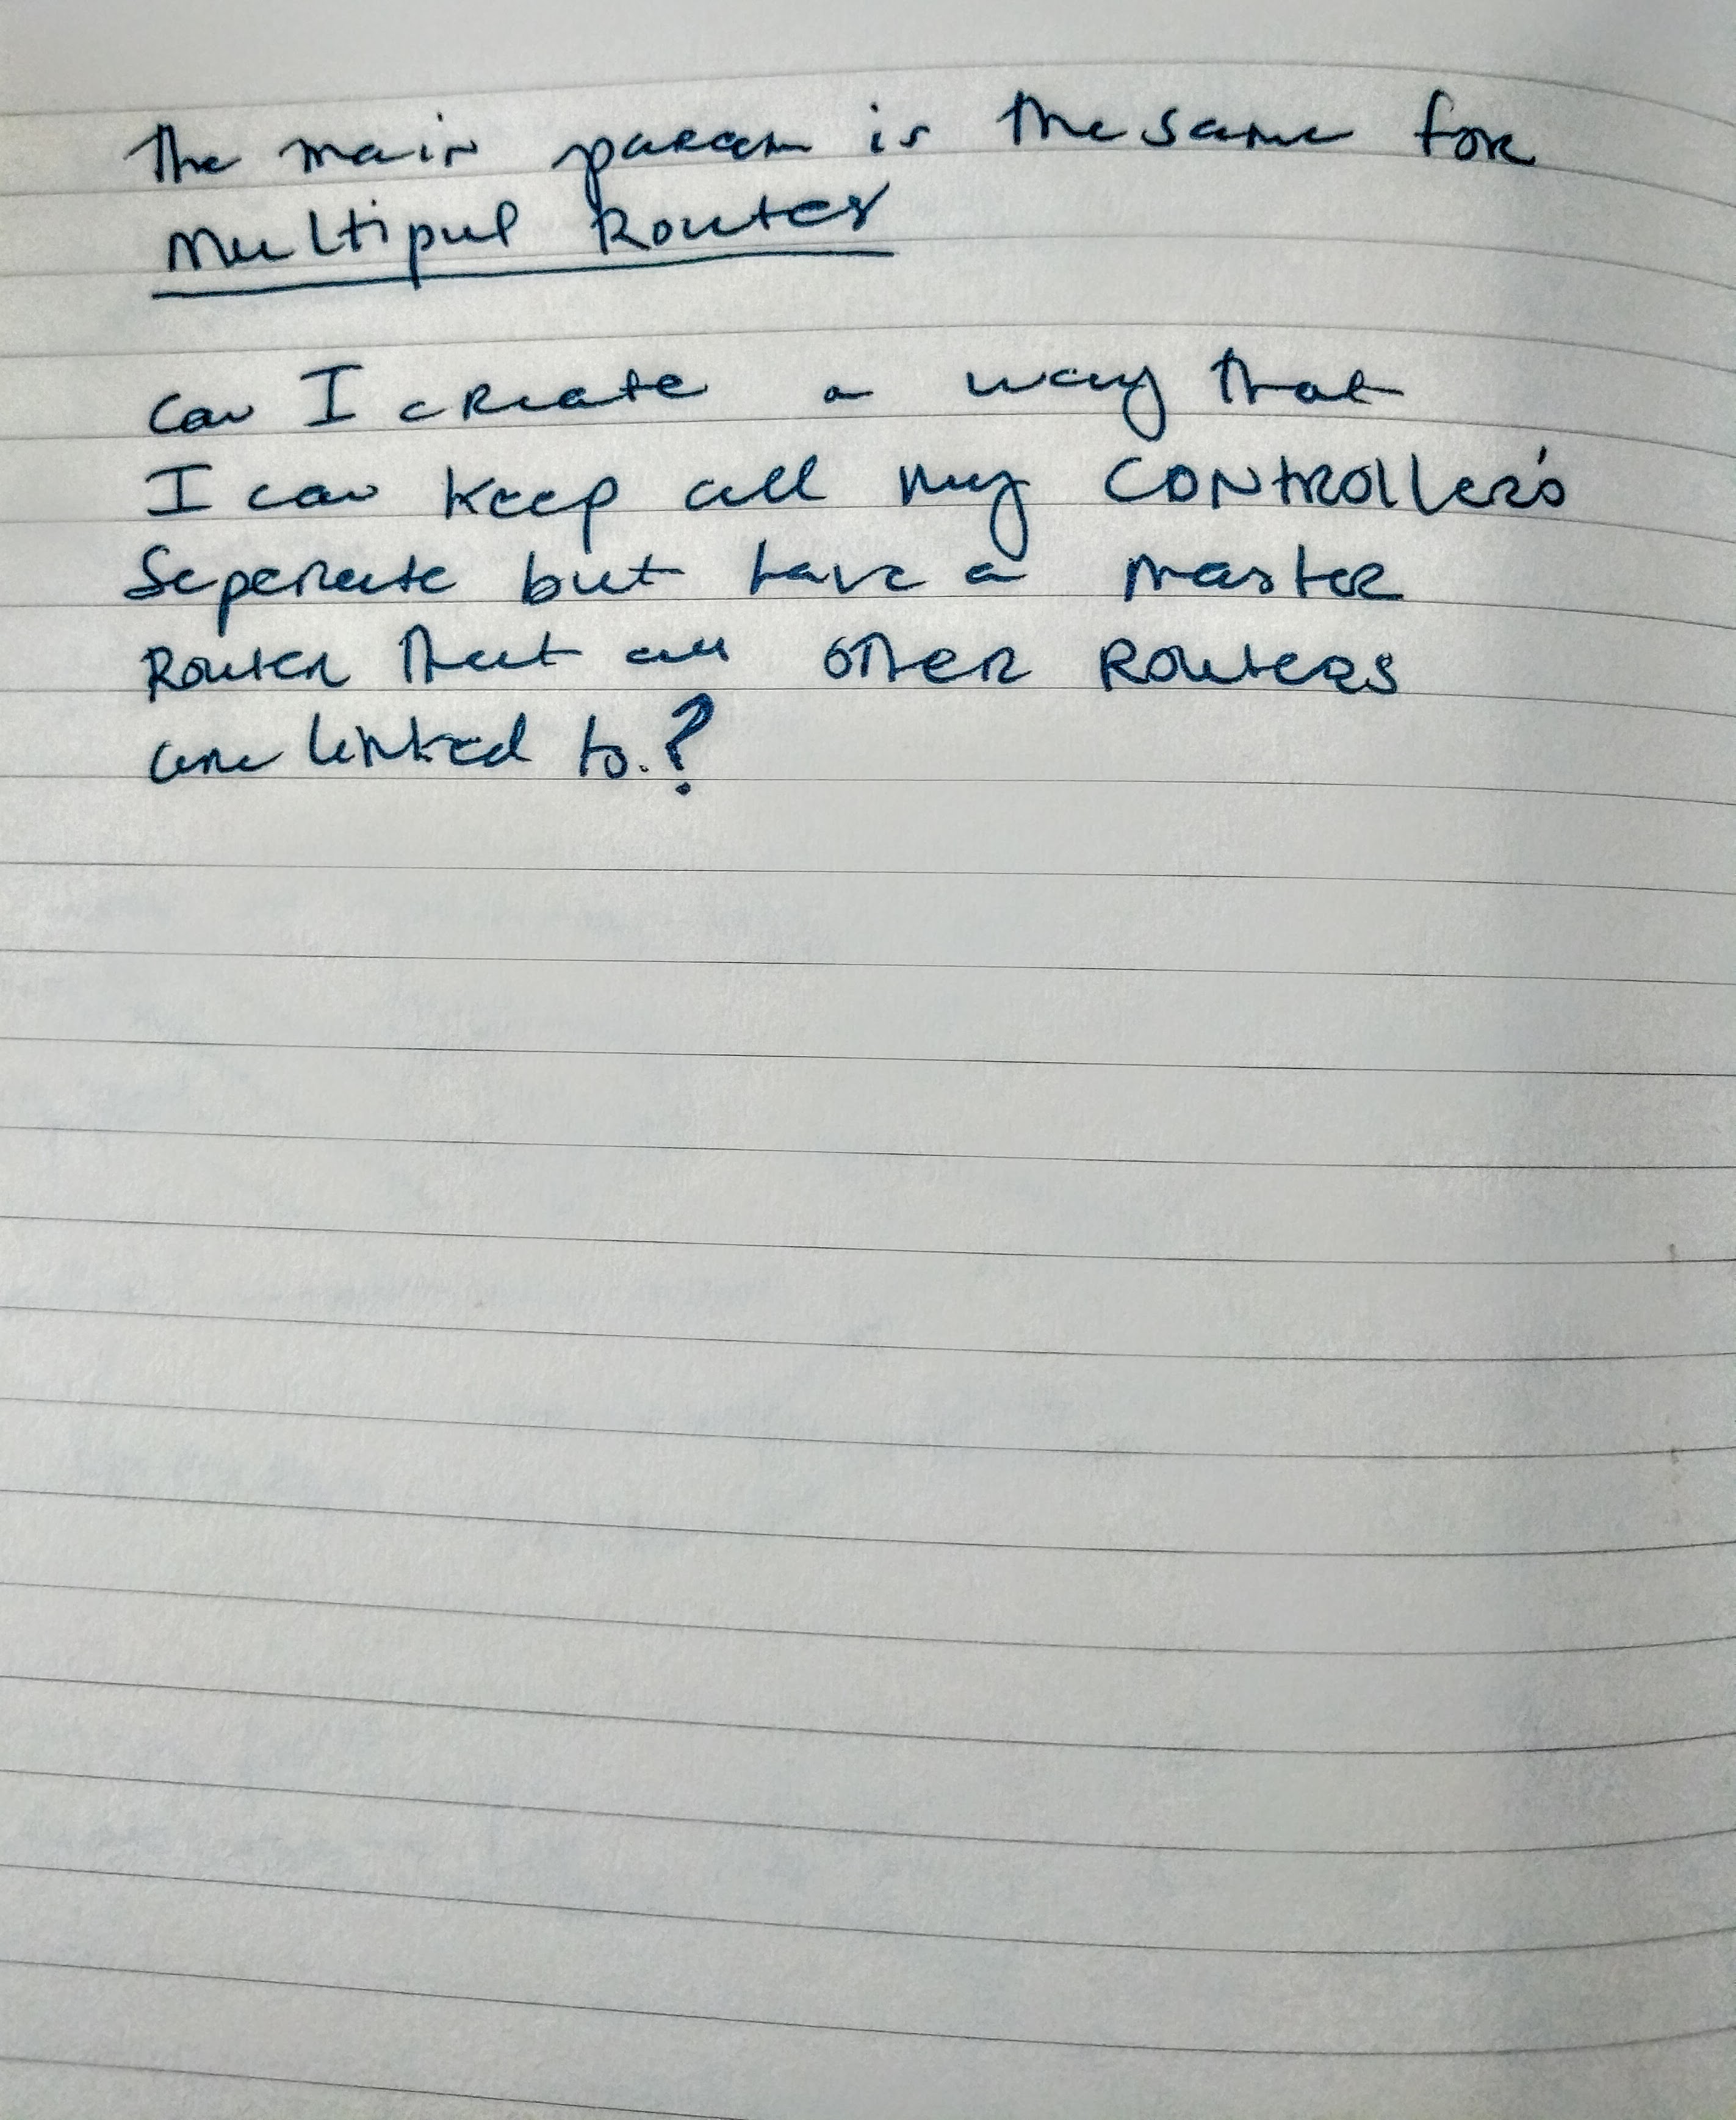 The main param is the same for
Multipul Routes
can I create a way that
I can keep all my CONtROllers
Seperate but have a master
Router that all other Routers
are linked to.?